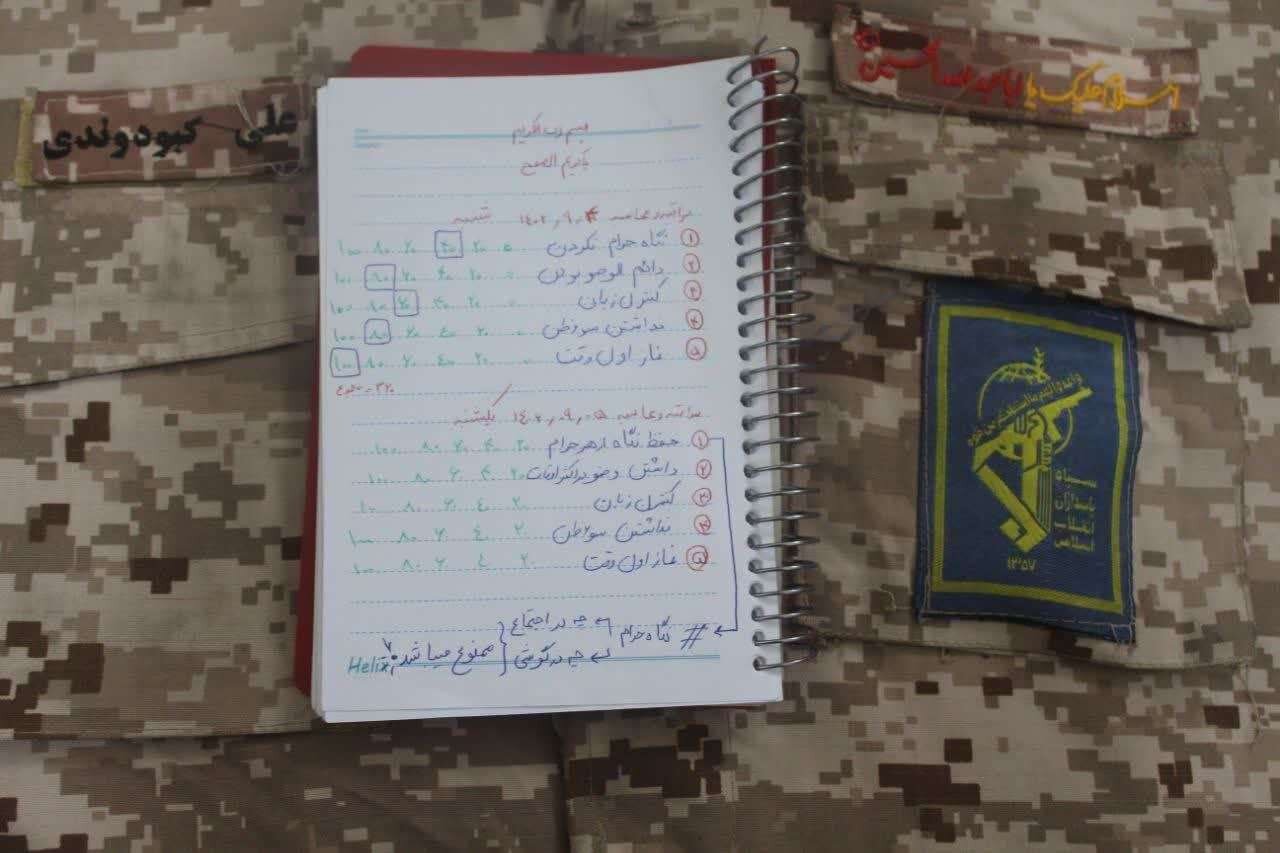 علی کبودوندی
السلام علیک یا اباعبدالله الحسین
بسم رب الکریم
یا کریم الصفح
مراقبه و محاسبه ۱۴۰۲٫۹٫۴ شنبه
۱ نگاه حرام نکردن ۰ ۲۰ ۴۰ ۶۰ ۸۰ ۱۰۰
۲ دائم الوضو بودن ۰ ۲۰ ۴۰ ۶۰ ۸۰ ۱۰۰
۳ کنترل زبان ۰ ۲۰ ۴۰ ۶۰ ۸۰ ۱۰۰
۴ نداشتن سوءظن ۰ ۲۰ ۴۰ ۶۰ ۸۰ ۱۰۰
۵ نماز اول وقت ۰ ۲۰ ۴۰ ۶۰ ۸۰ ۱۰۰
۳۲۰ = مجموع
مراقبه و محاسبه ۱۴۰۲٫۰۹٫۰۵ یکشنبه
۱ حفظ نگاه از هر حرام ۲۰ ۴۰ ۶۰ ۸۰ ۱۰۰
۲ داشتن وضو در اکثر اوقات ۲۰ ۴۰ ۶۰ ۸۰ ۱۰۰
۳ کنترل زبان ۲۰ ۴۰ ۶۰ ۸۰ ۱۰۰
۴ نداشتن سوءظن ۲۰ ۴۰ ۶۰ ۸۰ ۱۰۰
۵ نماز اول وقت ۲۰ ۴۰ ۶۰ ۸۰ ۱۰۰
# نگاه حرام
چه در اجتماع
چه در گوشی
ممنوع میباشد
Helix
واعدوا لهم ما استطعتم من قوة
سپاه
پاسداران
انقلاب
اسلامی
۱۳۵۷